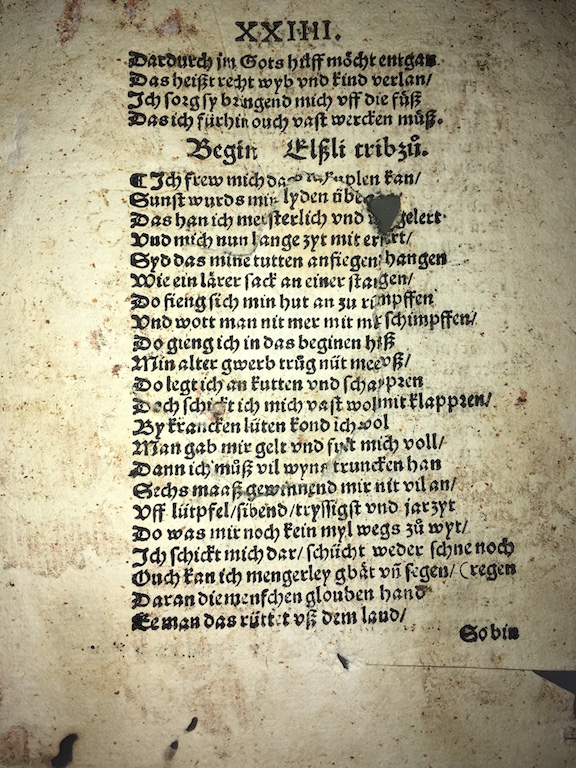 XXIIII.
Dardurch im Gots hilff möcht entgan.
Das heißt recht wyb vnd kind verlan/
Ich sorg sy bringend mich vff die füß
Das ich fürhin ouch vast wercken müß.
Begin Elßli tribzů.
¶ Ich frew mich kan/
Sunst wurds mir lyden
Das han ich meisterlich vnd gelert
Vnd mich nun lange zyt mit
Syd das mine tutten anfiegen hangen
Wie ein lärer sack an einer stangen/
Do fieng sich min hut an zu rimpffen
Vnd wott man nit mer mit mir schimpffen/
Do gieng ich in das beginen hß
Min alter gwerb trůg nüt
Do legt ich an kutten vnd schappren
Doch schickt ich mich vast wol mit klappren/
By krancken lüten kond ich wol
Man gab mir gelt vnd mich voll/
Dann ich můß vil wyns truncken han
Sechs maaß gewinnend mir nit vil an/
Vff lütpfel/sibend/tryssigst vnd jarzyt
Do was mir noch kein myl wegs zů wyt/
Ich schickt mich dar/ schücht weder schne noch
Ouch kan ich mengerley gbät vñ segen/ (regen
Daran die menschen glouben hand
Ee man das rüttet vß dem land/
So bin